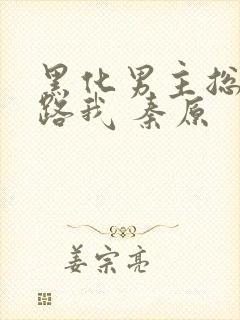 黑化男主总
路我 秦原
姜宗亮